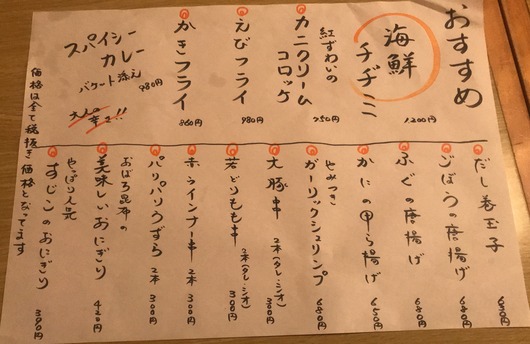 おすすめ
海鮮
チヂミ
1200円
紅ずわいの
カニクリーム
コロッケ
750円
えびフライ
980円
かきフライ
860円
スパイシー
カレー
バケート添え
980円
大人の辛さ!!
だし巻玉子
630円
ごぼうの唐揚げ
680円
ふぐの唐揚げ
680円
かにの甲ら揚げ
650円
やみつき
ガーリックシュリンプ
680円
大豚串
2本(タレ・シオ)
300円
若どりもも串
2本(タレ・シオ)
300円
赤ウインナー串
2本
300円
パリパリうずら
2本
300円
おぼろ昆布の
美味しいおにぎり
420円
やっぱり人気
すじこのおにぎり
390円
価格は全て税抜き価格となってます